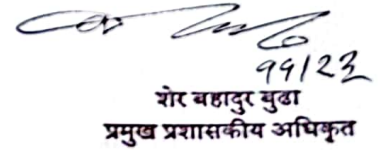 ११।२३
शेर बहादुर बुढा
प्रमुख प्रशासकीय अधिकृत